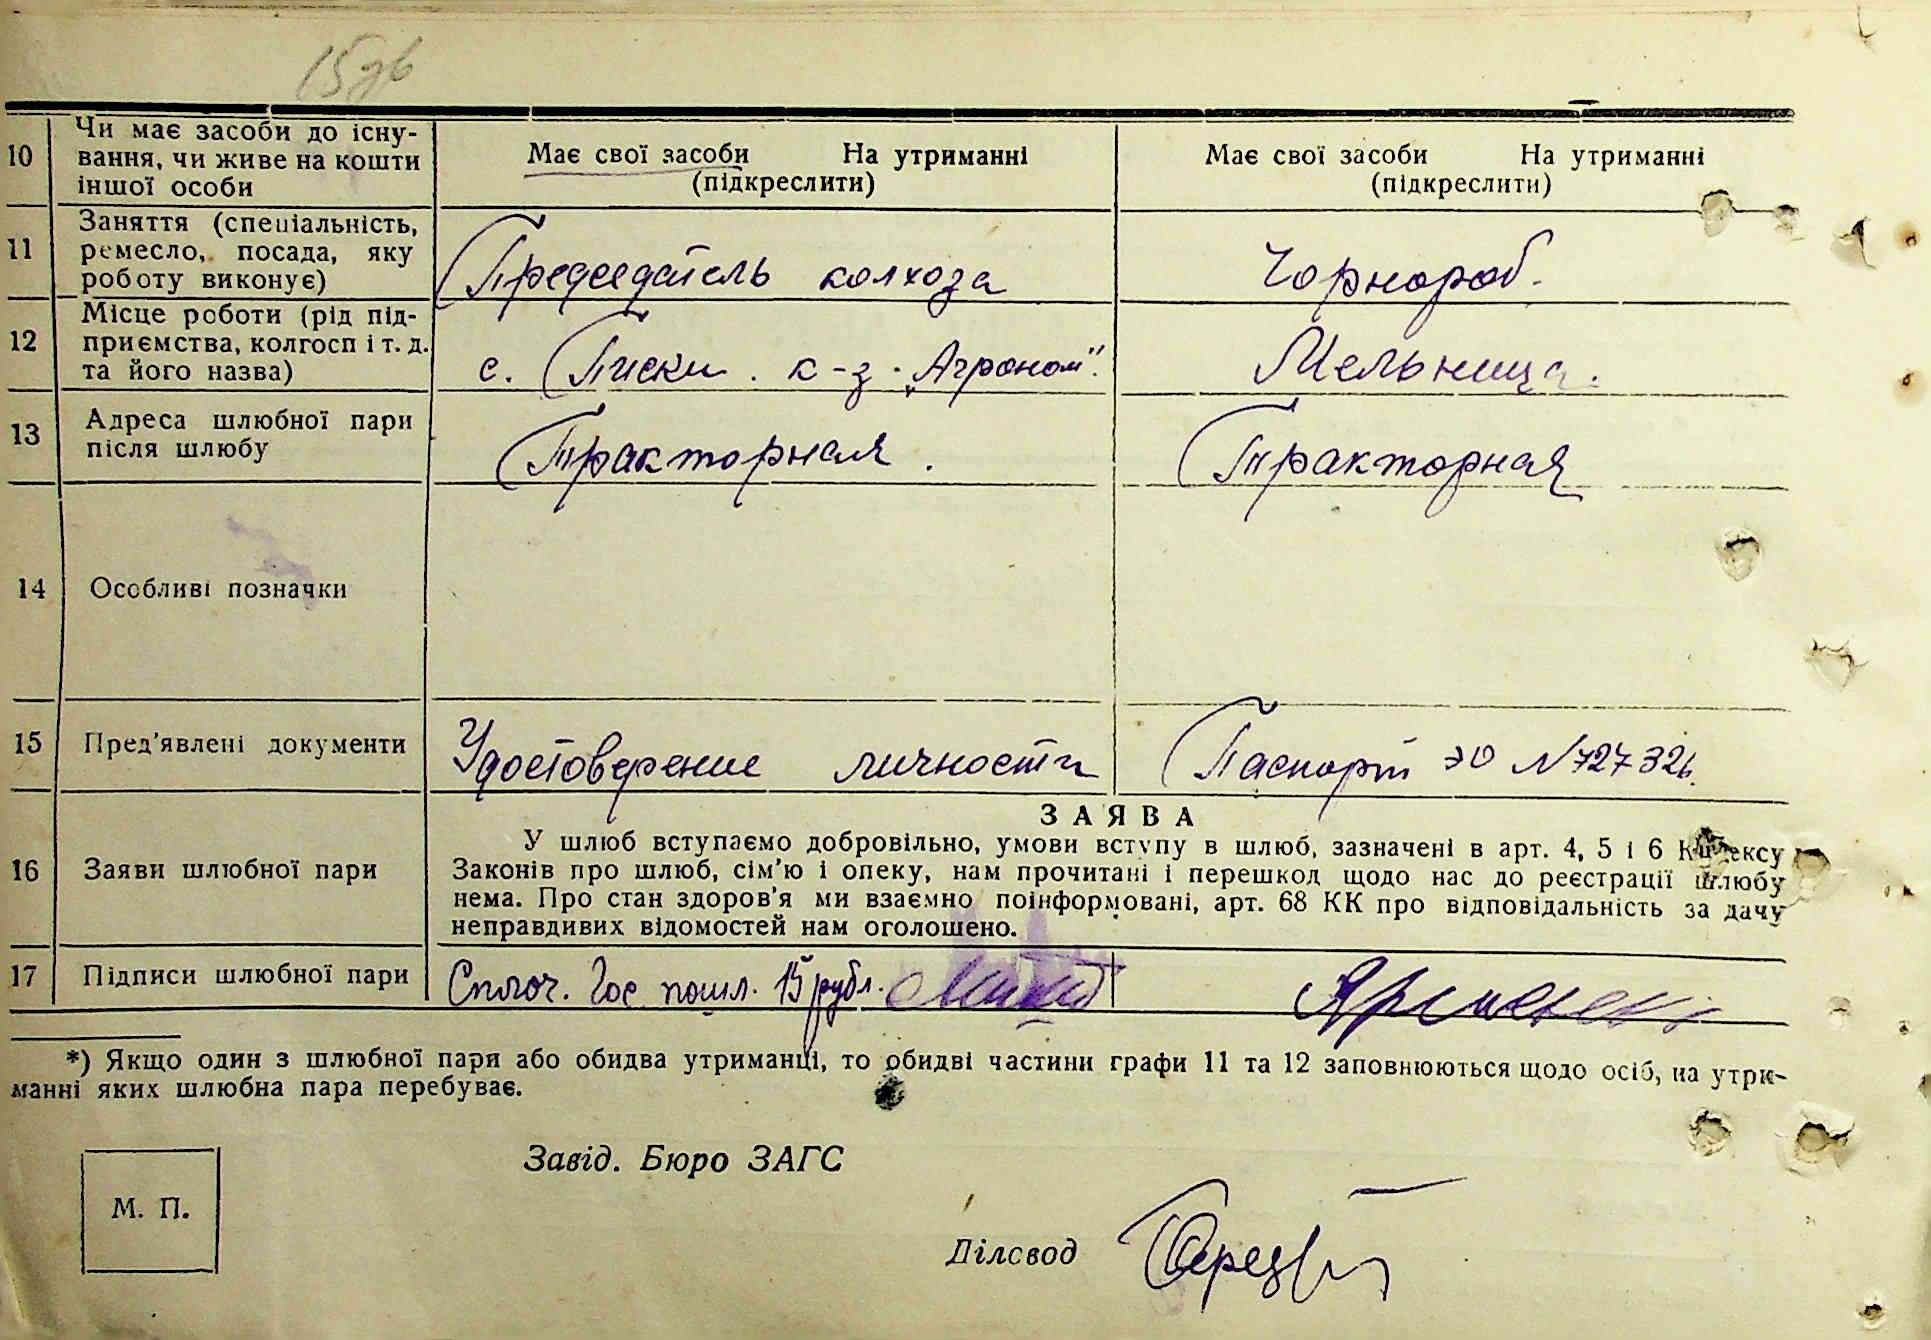 10 Чи має засоби до існу-
вання, чи живе на кошти
іншої особи
Має свої засоби На утриманні
(підкреслити)
Має свої засоби На утриманні
(підкреслити)
11 Заняття (спеціальність,
ремесло, посада, яку
роботу виконує)
Председатель колхоза
Чорнороб.
12 Місце роботи (рід під-
приємства, колгосп і т. д.
та його назва)
с. Писки. к-з. „Агроном".
Мельница.
13 Адреса шлюбної пари
після шлюбу
Тракторная.
Тракторная
14 Особливі позначки
15 Пред'явлені документи
Удостоверение личности
Паспорт ЭО №727326.
16 Заяви шлюбної пари
ЗАЯВА
У шлюб вступаємо добровільно, умови вступу в шлюб, зазначені в арт. 4, 5 і 6 Кодексу
Законів про шлюб, сім'ю і опеку, нам прочитані і перешкод щодо нас до реєстрації шлюбу
нема. Про стан здоров'я ми взаємно поінформовані, арт. 68 КК про відповідальність за дачу
неправдивих відомостей нам оголошено.
17 Підписи шлюбної пари
Сплоч. Гос. пошл. 15 рубл.
*) Якщо один з шлюбної пари або обидва утриманці, то обидві частини графи 11 та 12 заповнюються щодо осіб, на утри-
манні яких шлюбна пара перебуває.
Завід. Бюро ЗАГС
М. П.
Діловод